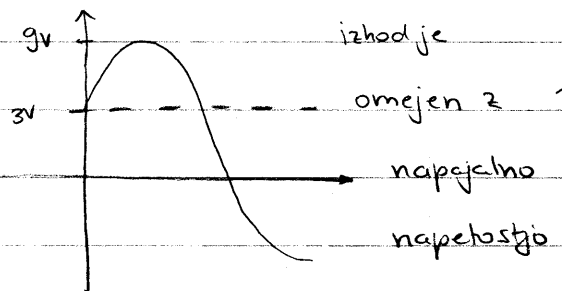 9V
izhod je
3V
omejen z
napajalno
napetostjo